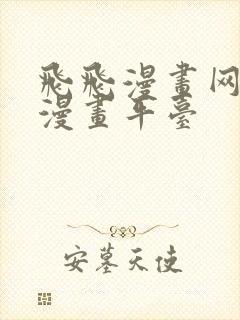 飛飛漫畫网
漫畫平臺
安墓天使